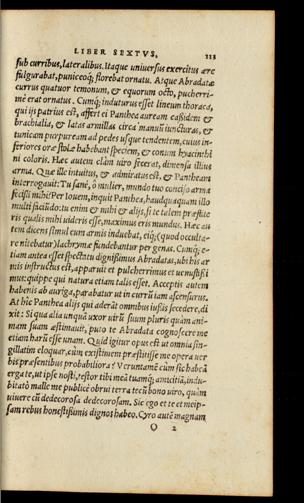 LIBER SEXTVS. 113
sub curribus, lateralibus. Itaque uniuersus exercitus ære
fulgurabat, puniceoq́; florebat ornatu. Atque Abradatæ
currus quatuor temonum, & equorum octo, pucherri-
mè erat ornatus. Cumq́; induturus esset lineum thoraca,
qui ijs patrius est, affert ei Panthea auream cassidem &
brachialia, & latas armillas circa manuũ iuncturas, &
tunicam purpuream ad pedes usque tendentem, cuius in-
feriores oræ stolæ habebant speciem, & conum hyacinthi
ni coloris. Hæc autem clàm uiro fecerat, dimensa illius
arma. Quæ ille intuitus, & admiratus est, & Pantheam
interrogauit: Tu sanè, ò mulier, mundo tuo conciso arma
fecisti mihi? Per Iouem, inquit Panthea, haudquaquam illo
multi faciũdo: tu enim & mihi & alijs, si te talem præstite
ris qualis mihi uideris esse, maximus eris mundus. Hæc au
tem dicens simul eum armis induebat, eiq́;(quod occulta-
re nitebatur) lachrymæ fundebantur per genas. Cumq́; e-
tiam antea esset spectatu dignißimus Abradatas, ubi his ar
mis instructus est, apparuit et pulcherrimus et uenustißi
mus: quippe qui natura etiam talis esset. Acceptis autem
habenis ab auriga, parabatur ut in currũ iam ascensurus.
At hîc Panthea alijs quī aderāt omnibus iußis secedere, di
xit: Si qua alia unquā uxor uirũ suum pluris quàm ani-
mam suam æstimauit, puto te Abradata cognoscere me
etiam harũ esse unam. Quid igitur opus est ut omnia sin-
gillatim eloquar, cùm existimem præstitisse me opera uer
bis præsentibus probabiliora? Veruntamē cùm sic habeā
erga te, ut ipse nosti, testor tibi meā tuamq́; amicitiā, indu-
bitatò malle me publicè obrui terra tecũ bono uiro, quàm
uiuere cũ dedecoroso dedecorosam. Sic ego et te et meip-
sam rebus honestißimis dignos habeo. Cyro autē magnam
O 2